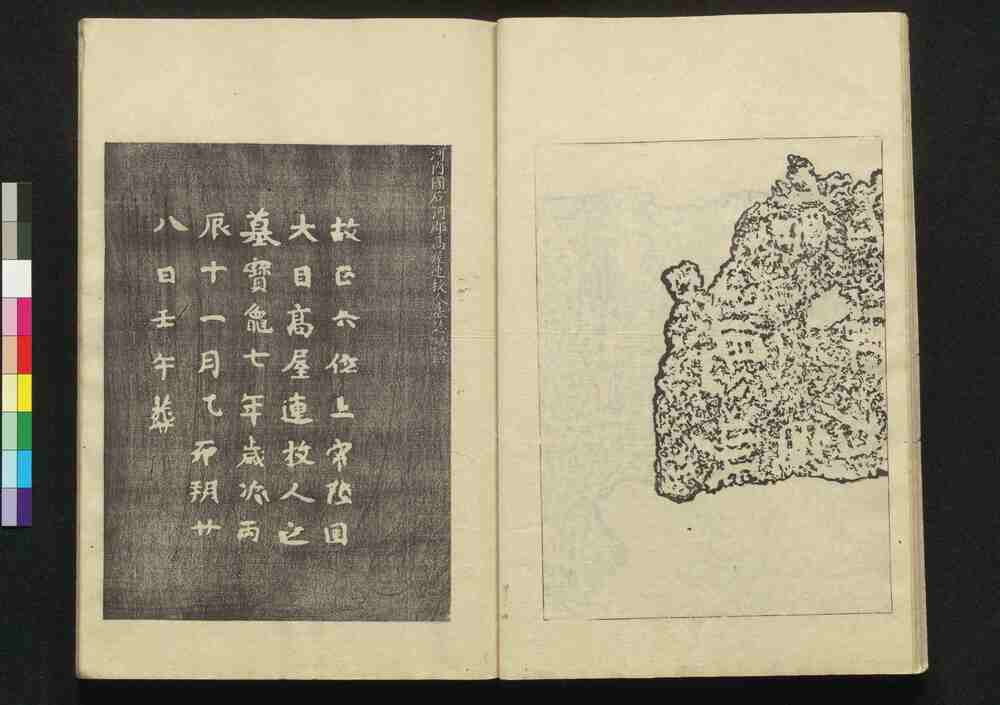 河内國石川郡高屋連枚人
故正六位上常陸國
大目髙屋連枚人之
墓寶龜七年歳次丙
辰十一月乙卯朔廿
八日壬午葬